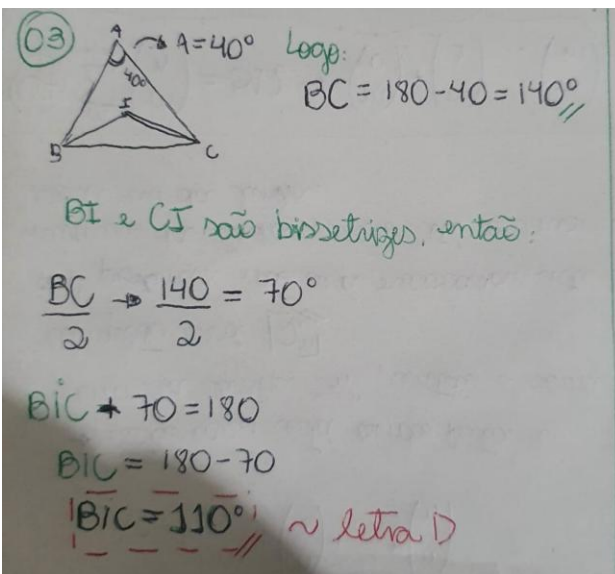 03
A → A = 40°
40°
I
B C
Logo:
BC = 180 - 40 = 140°
BI e CI são bissetrizes, então:
BC/2 → 140/2 = 70°
BIC + 70 = 180
BIC = 180 - 70
BIC = 110° ~ letra D